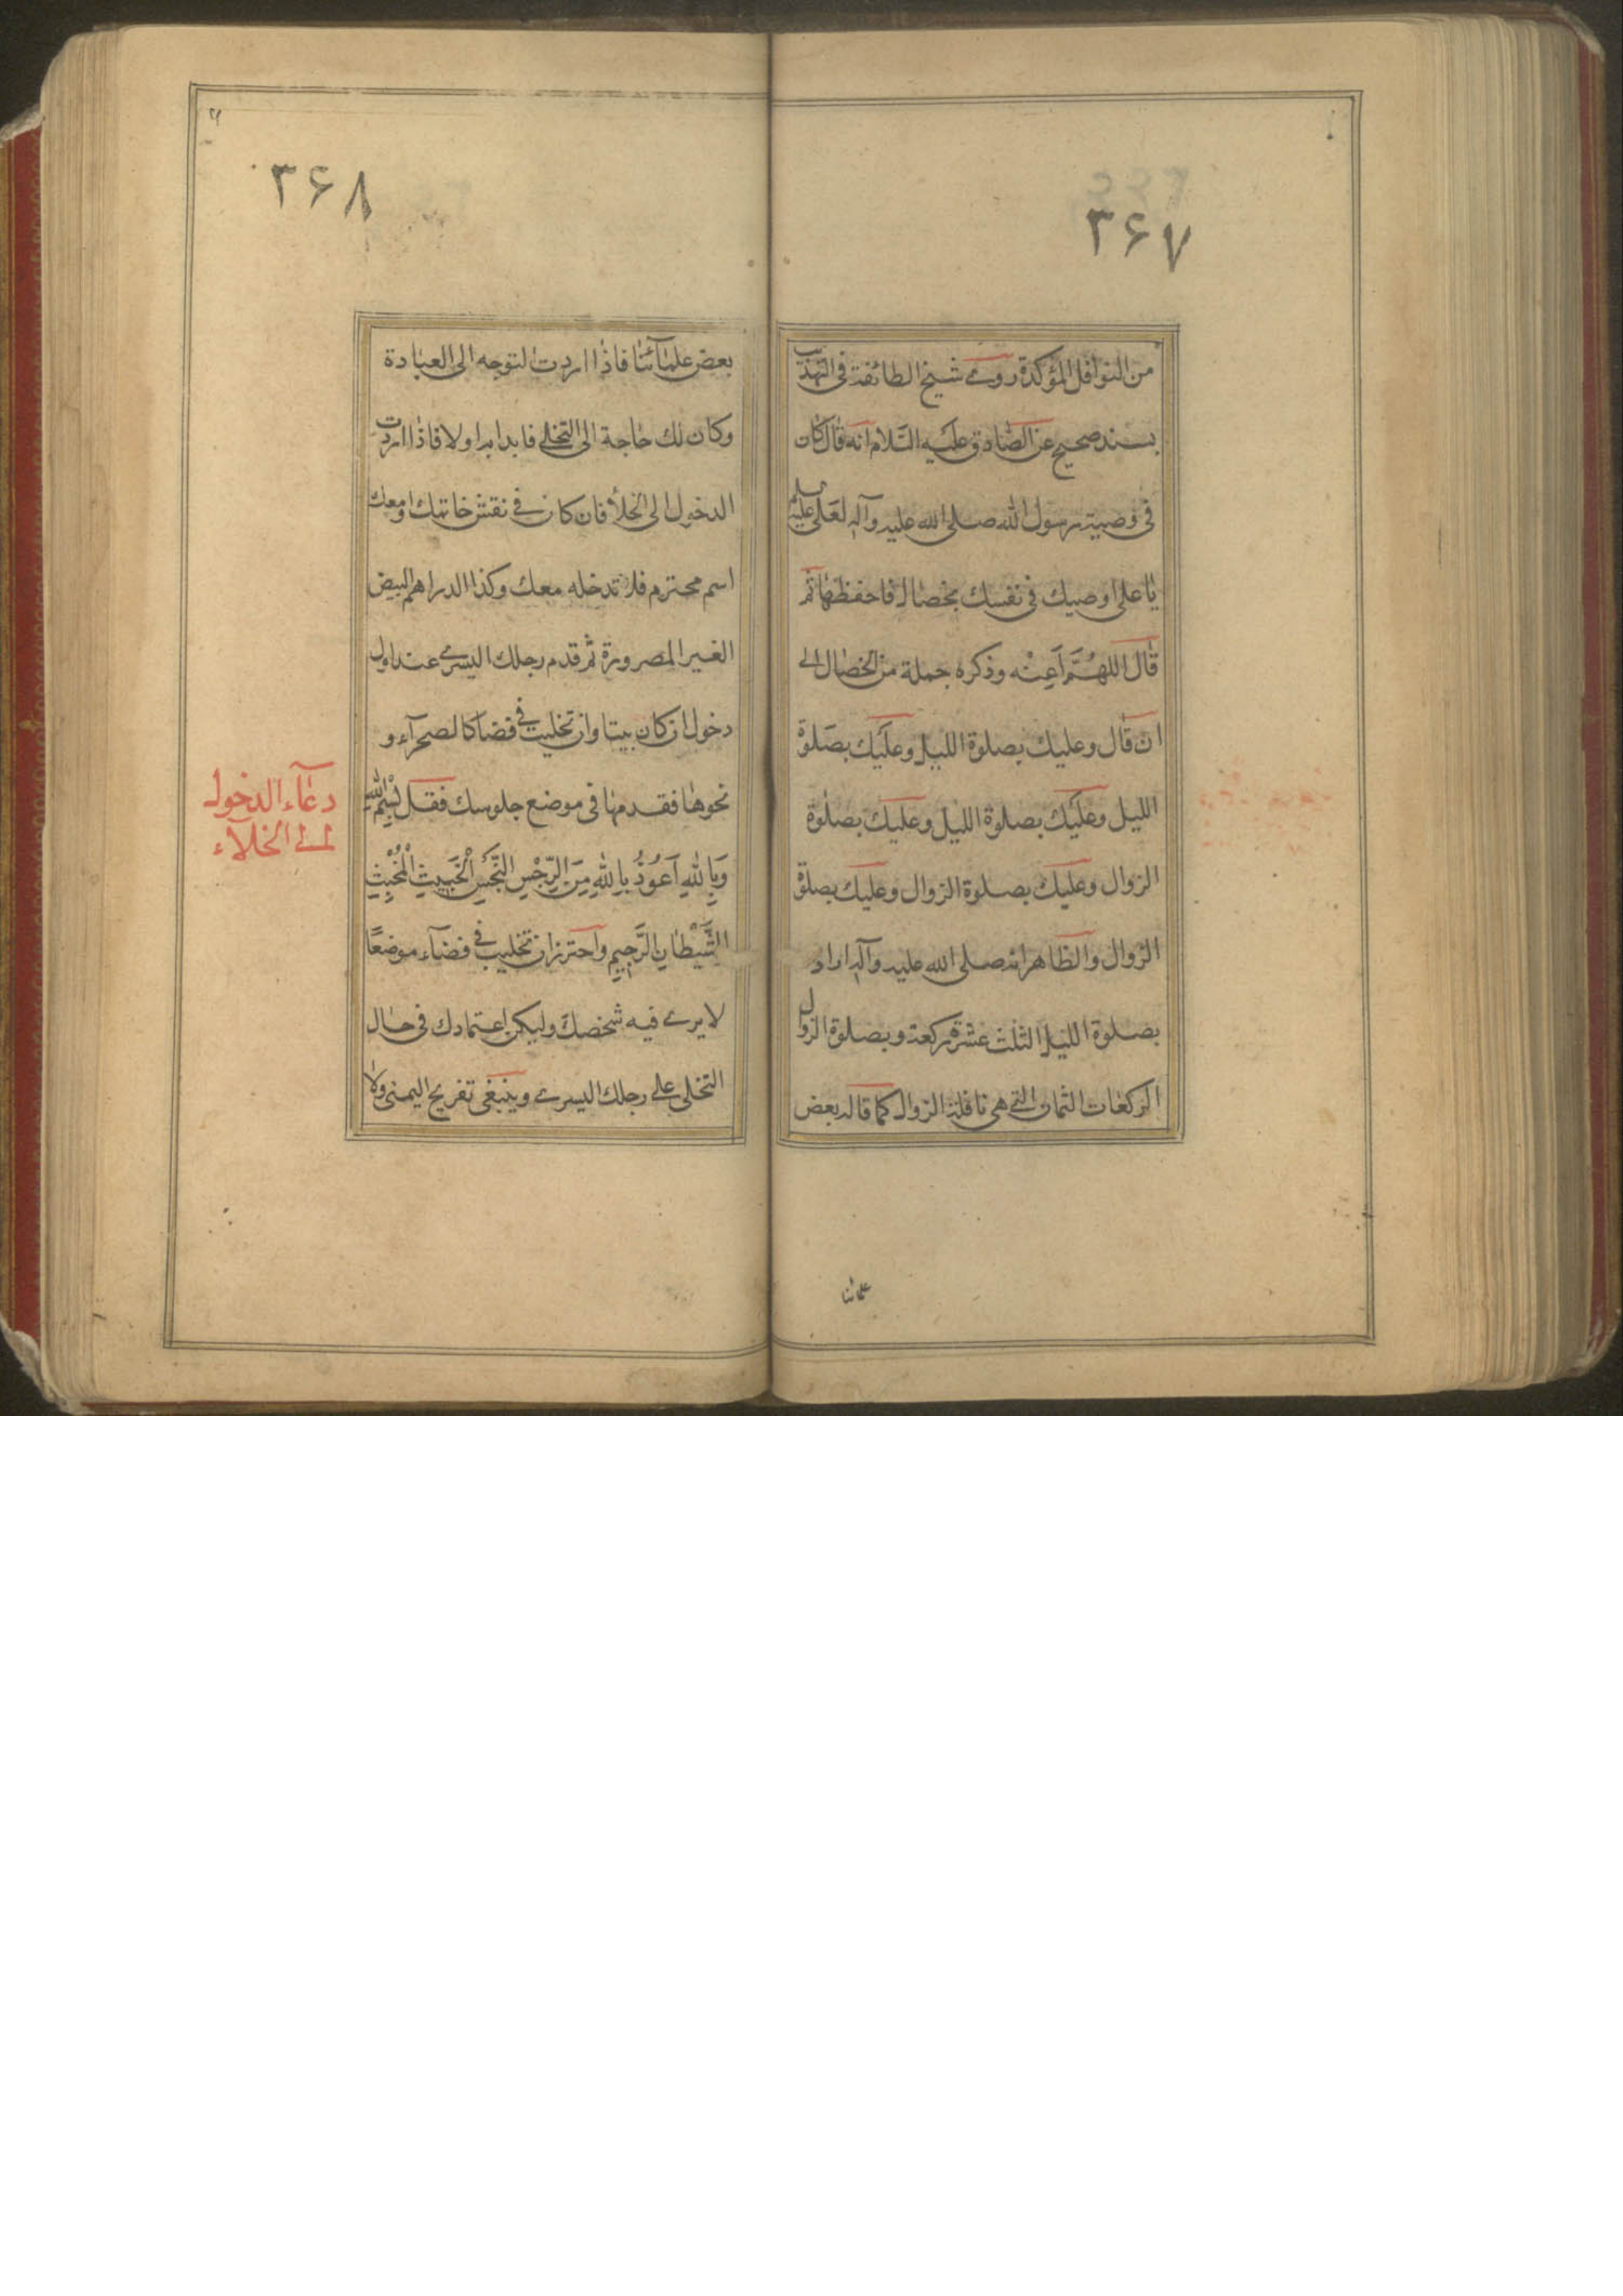 ۳۶۷
من النوافل المؤكدة روى شيخ الطائفة فى التهذيب
بسند صحيح عن الصادق عليه السلام انه قال كان
فى وصية رسول الله صلى الله عليه وآله لعلى عليه السلم
يا على اوصيك فى نفسك بخصال فاحفظها ثم
قال اللهُمَّ اَعِنْه وذكره جملة من الخصال الى
ان قال وعليك بصلوة الليل وعليك بصلوة
الليل وعليك بصلوة الليل وعليك بصلوة
الزوال وعليك بصلوة الزوال وعليك بصلوة
الزوال والظاهر انه صلى الله عليه وآله اراد
بصلوة الليل الثلث عشرة ركعة وبصلوة الزوال
الركعات الثمان التى هى نافلة الزوال كما قاله بعض
علمائنا
۳۶۸
بعض علمآئنا فاذا اردت التوجه الى العبادة
وكان لك حاجة الى التخلى فابدا بها اولا فاذا اردت
الدخول الى الخلأ فان كان فى نقش خاتمك او معك
اسم محترم فلا تدخله معك وكذا الدراهم البيض
الغير المصرورة ثم قدم رجلك اليسرى عند اول
دخول ان كان بيتا وان تخليت فى فضا كالصحرآء و
نحوها فقدمها فى موضع جلوسك فقل بِسْمِ اللهِ
وَبِاللهِ اَعُوذُ بِاللهِ مِنَ الرِّجْسِ النَّجَسِ الْخَبيثِ الْمُخْبِثِ
الشَّيْطانِ الرَّجيمِ واحترز ان تخليت فى فضآء موضعًا
لا يرى فيه شخصك وليكن اعتمادك فى حال
التخلى على رجلك اليسرى وينبغى تفريج اليمنى ولا
دعآء الدخول
الى الخلآء